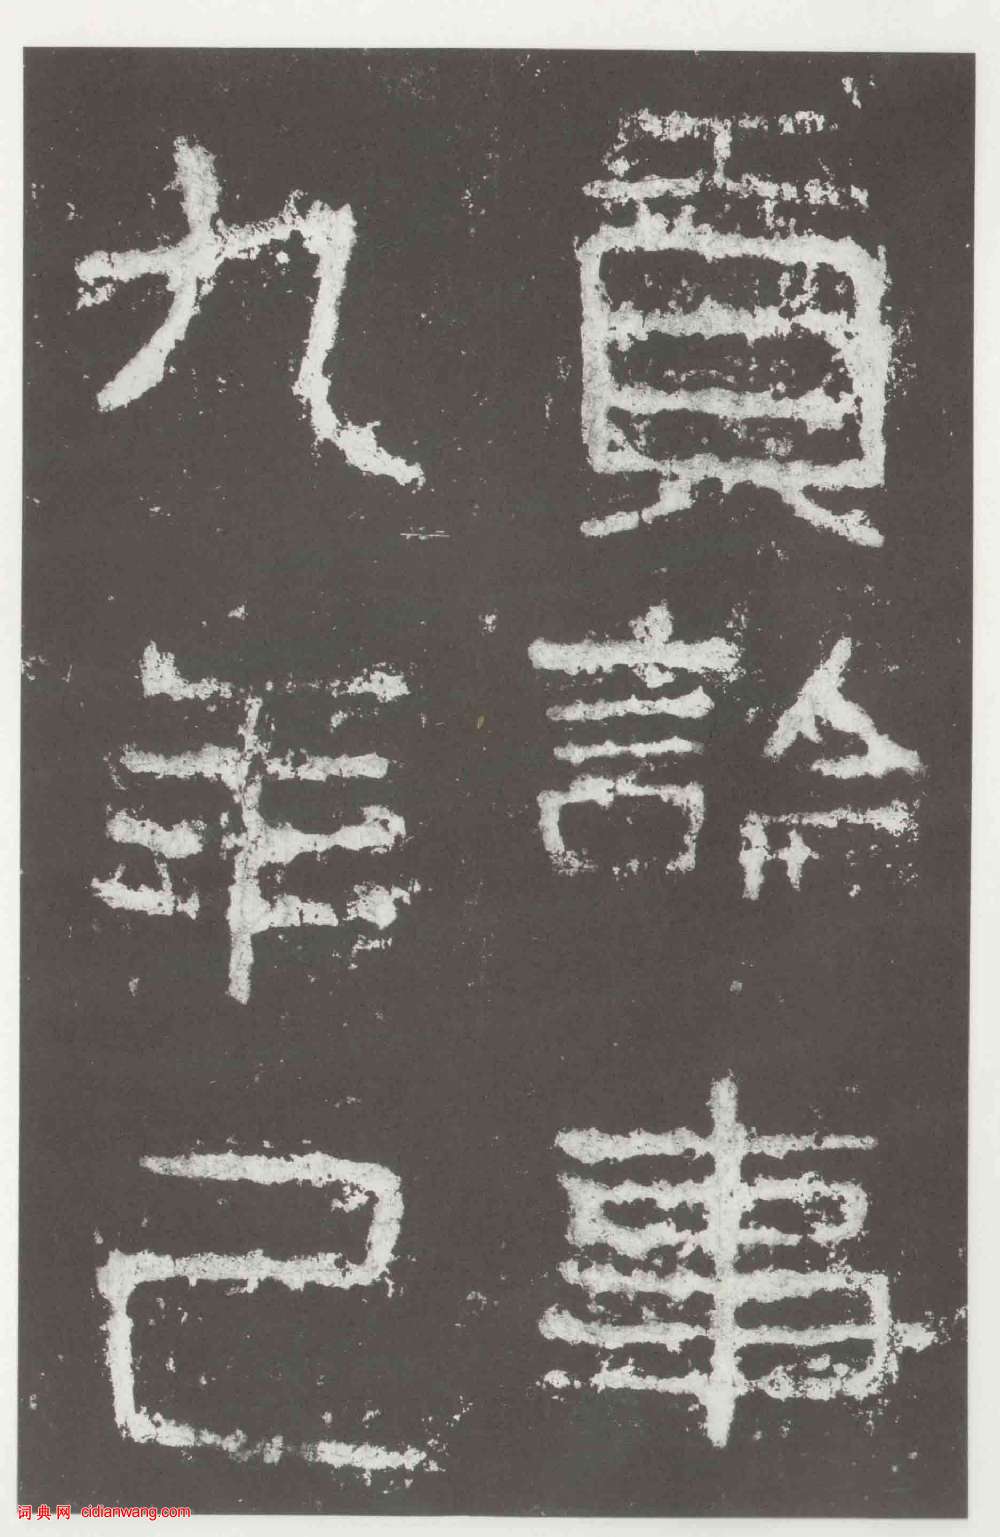 貢論事
九年己
词典网 cidianwang.com